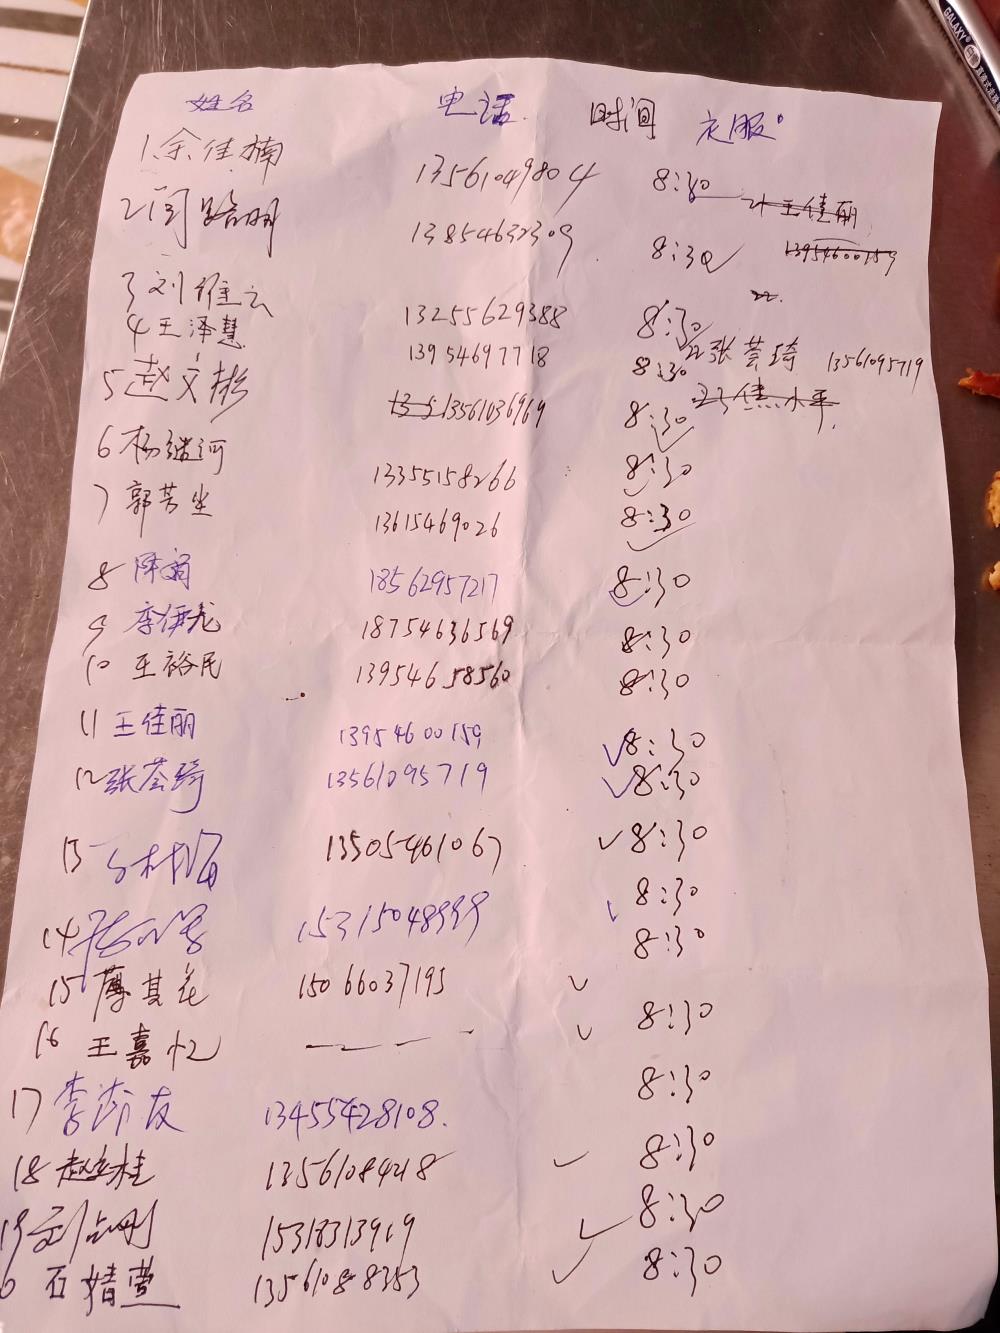 姓名 电话 时间 衣服
1、余佳楠 13561049804 8:30 21 王佳丽
2 闫路明 13854632309 8:30 13954600159
22.
3 刘维云 13255629388 8:30
4 王泽慧 13954697718 8:30 22 张荟琦 13561095719
5 赵文彬 135 13561036969 8:30 23 焦水平
6 杨继河 13355158266 8:30
7 郭芳坐 13615469026 8:30
8 陈 18562957217 8:30
9 李伊龙 18754636569 8:30
10 王裕民 13954658560 8:30
11 王佳丽 13954600159 8:30
12 张荟琦 13561095719 8:30
13 13505461067 8:30
14 15315048999 8:30
8:30
15 薄其花 15066037195 8:30
16 王嘉忆 — — – 8:30
17 李 友 13455428108. 8:30
18 赵 桂 13561084218 8:30
19 刘占刚 15318313919 8:30
石婧萱 13561088353
GALAXY